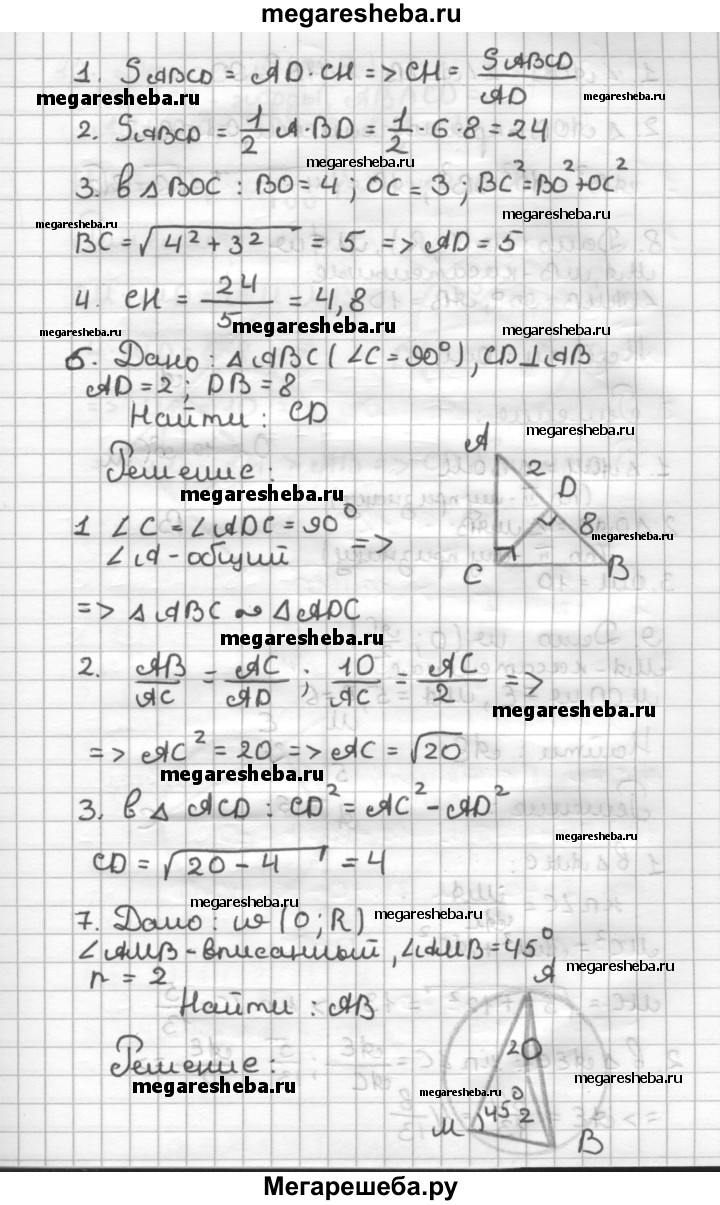 megaresheba.ru
1. SABCD = AD · CH => CH = SABCD / AD
megaresheba.ru
megaresheba.ru
2. SABCD = 1/2 A · BD = 1/2 · 6 · 8 = 24
megaresheba.ru
3. в △ BOC : BO = 4 ; OC = 3 ; BC² = BO² + OC²
megaresheba.ru
megaresheba.ru
BC = √4² + 3² = 5 => AD = 5
megaresheba.ru
4. CH = 24/5 = 4,8
megaresheba.ru
megaresheba.ru
6. Дано : △ABC (∠C = 90°), CD⊥AB
AD = 2 ; DB = 8
Найти : CD
megaresheba.ru
Решение :
megaresheba.ru
A
2
D
8
C
B
1 ∠C = ∠ADC = 90°
∠A - общий =>
megaresheba.ru
=> △ABC ~ △ADC
megaresheba.ru
2. AB/AC = AC/AD ; 10/AC = AC/2 =>
megaresheba.ru
=> AC² = 20 => AC = √20
megaresheba.ru
3. в △ ACD : CD² = AC² - AD²
megaresheba.ru
CD = √20 - 4 = 4
megaresheba.ru
7. Дано : w (O ; R)
megaresheba.ru
∠AMB - вписанный, ∠AMB = 45°
r = 2
megaresheba.ru
Найти : AB
Решение :
megaresheba.ru
A
2
O
megaresheba.ru
megaresheba.ru
45°
2
M
B
Мегарешеба.ру